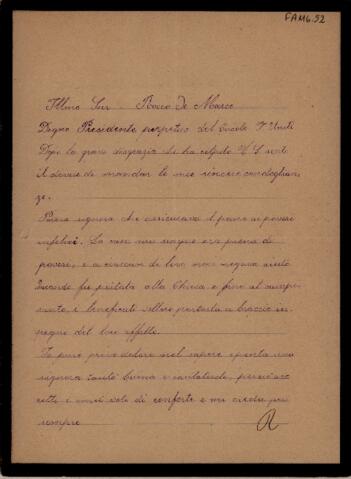 FAM6.52
Illmo Sur - Rocco De Marco
Degno Presidente perpetuo del Circolo F Uniti
Dopo la grave disgrazia che ha colpito V. S. sento
il dovere di mandar le mie sincere condoglian
ze.
Povera signora che assicurava il pane ai poveri
infelici. La casa sua sempre era piena di
poveri, e a ciascun di loro non negava aiuto
Quando fu portata alla Chiesa e fino al campo
santo, i beneficati vollero portarla a braccio in
segno del loro affetto.
Io provo dolore nel sapere spenta una
signora tanto buona e caritatevole, perciò acc
etti i miei voti di conforto e mi creda per
sempre